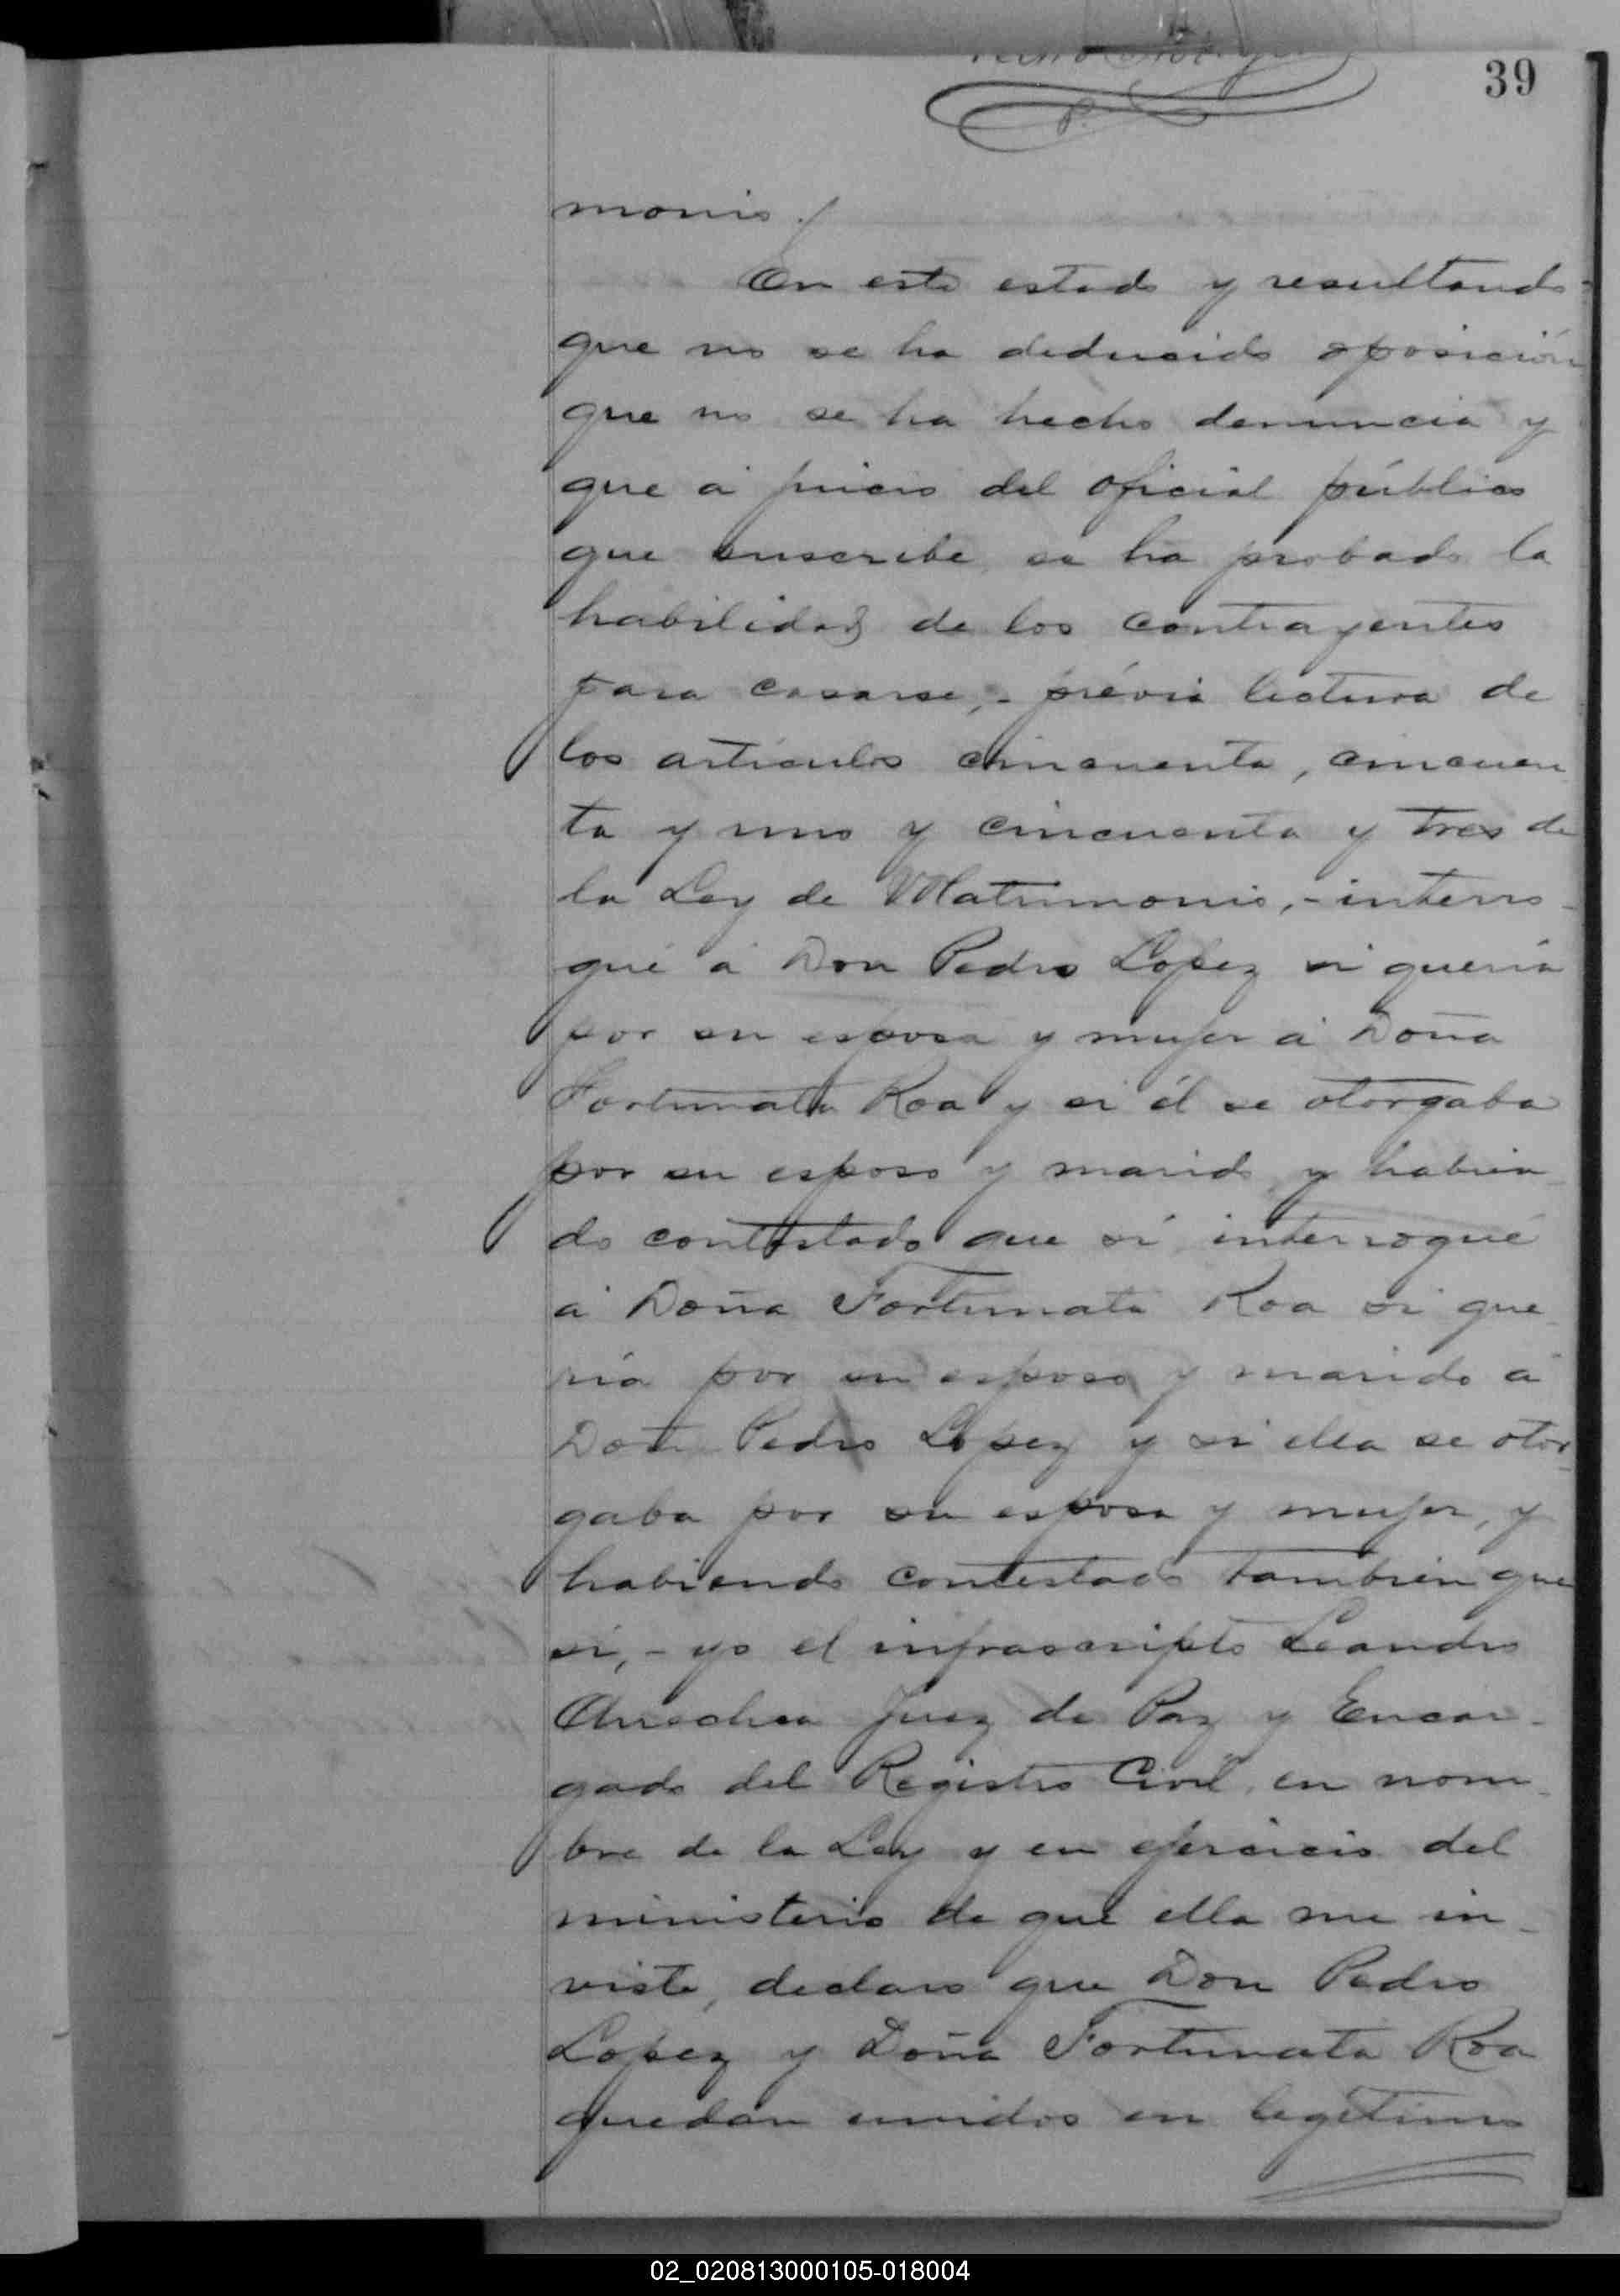 39
monio./
En este estado y resultando
que no se ha deducido oposición
que no se ha hecho denuncia y
que á juicio del oficial público
que suscribe se ha probado la
habilidad de los contrayentes
para casarse,- prévia lectura de
los artículos cincuenta, cincuen
ta y uno y cincuenta y tres de
la Ley de Matrimonio,- interro-
gué á Don Pedro Lopez si quería
por su esposa y mujer á Doña
Fortunata Roa y si él se otorgaba
por su esposo y marido, y habien
do contestado que sí interrogué
á Doña Fortunata Roa si que
ría por su esposo y marido á
Don Pedro Lopez y si ella se otor
gaba por su esposa y mujer, y
habiendo contestado tambien que
sí,- yo el infrascripto Leandro
Arrechea Juez de Paz y Encar-
gado del Registro Civil, en nom-
bre de la Ley y en ejercicio del
ministerio de que ella me in-
viste, declaro que Don Pedro
Lopez y Doña Fortunata Roa
quedan unidos en legítimo
02_020813000105-018004